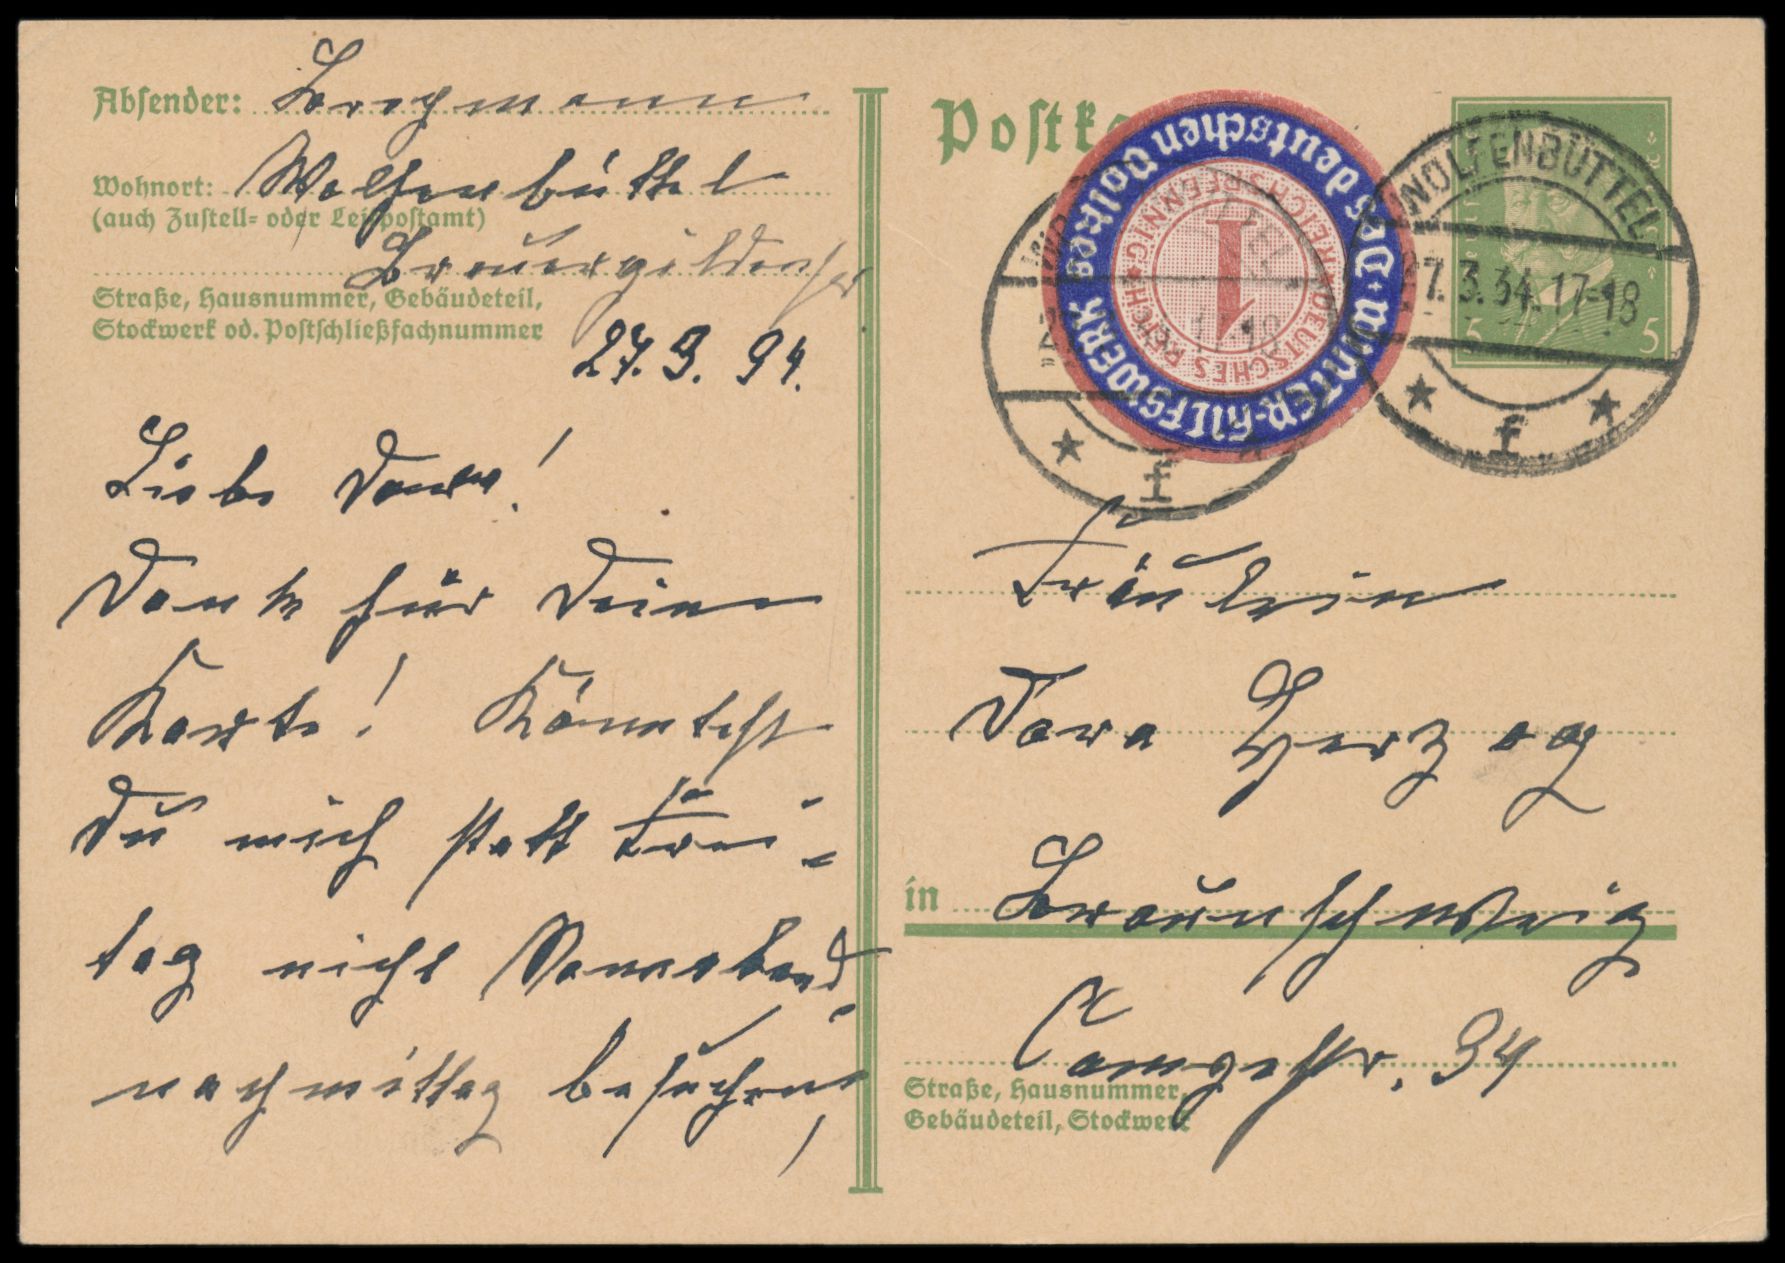 Absender: Bergmann
Wohnort: Wolfenbüttel
(auch Zustell- oder Leitpostamt)
Brauergildenstr
Straße, Hausnummer, Gebäudeteil,
Stockwerk od. Postschließfachnummer
27. 3. 34.
Liebe Dora!
Danke für Deine
Karte! Könntest
Du mich statt Frei-
tag nicht Sonnabend
nachmittag besuchen,
Postka
WINTER-HILFSWERK des deutschen Volkes
DEUTSCHES REICH 1 REICHSPFENNIG
1
WOLFENBÜTTEL
7.3.34.17-18
f
17-18
f
5 5
Fräulein
Dora Herzog
in Braunschweig
Campestr. 34
Straße, Hausnummer,
Gebäudeteil, Stockwerk